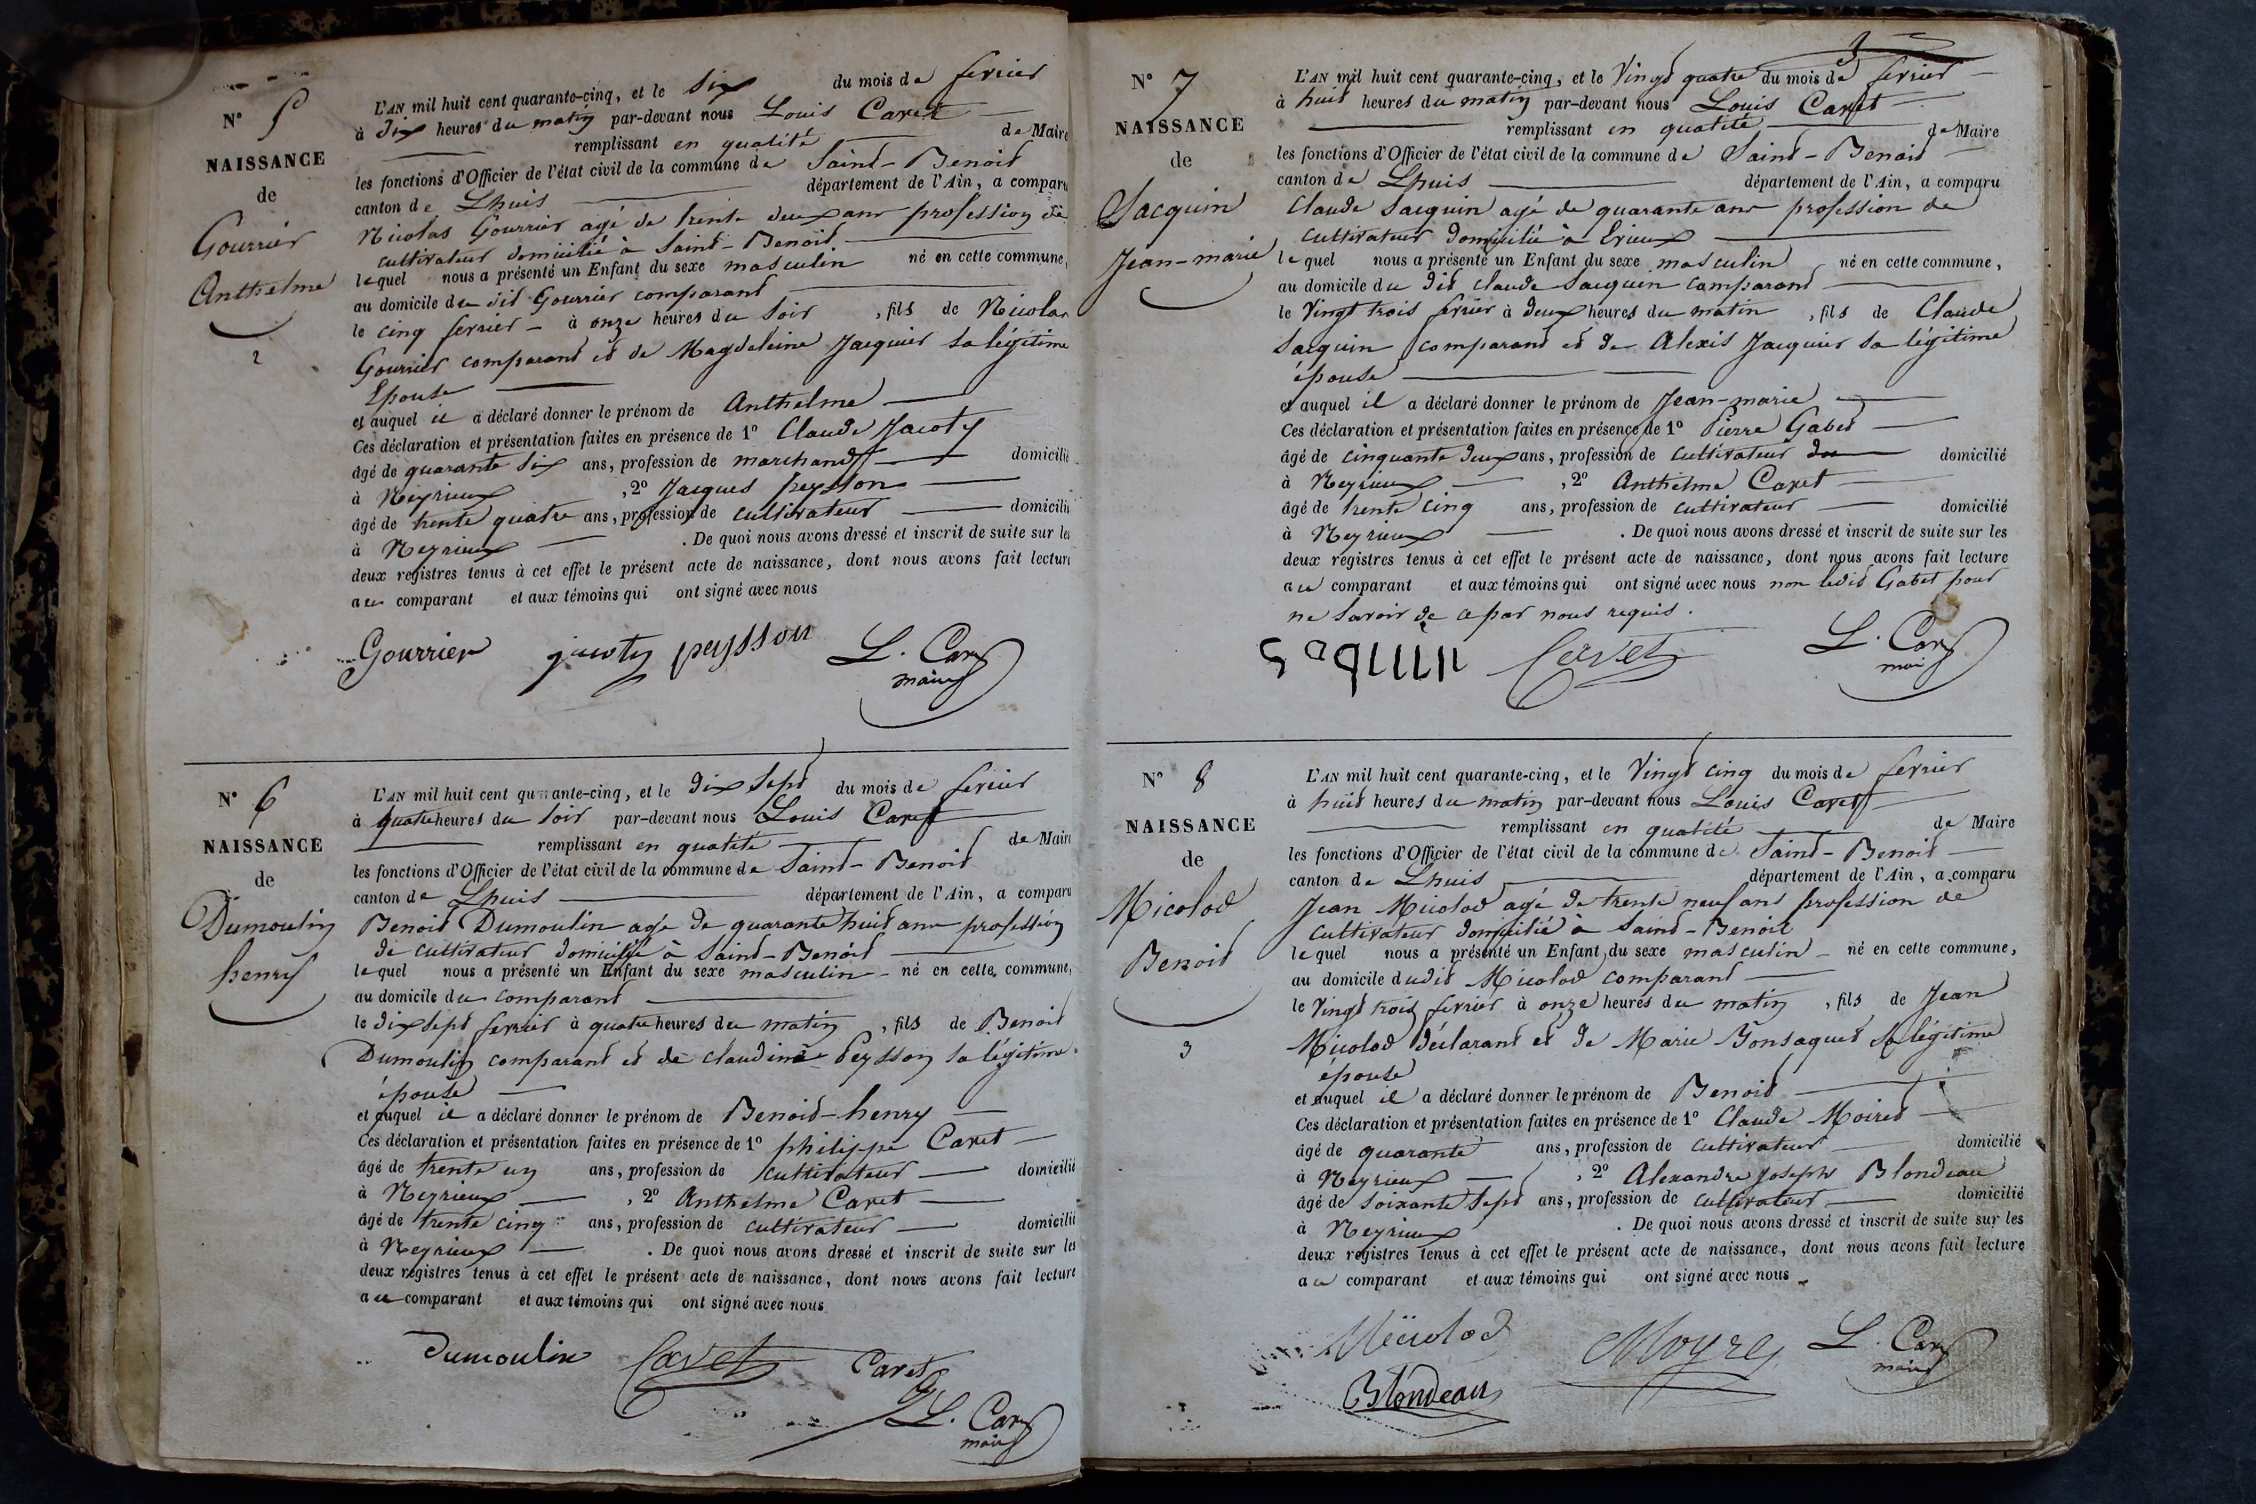 N° 5
NAISSANCE
de
Gourrier
Anthelme
2
L'AN mil huit cent quarante-cinq, et le six du mois de fevrier
à dix heures du matin par-devant nous Louis Cavet
remplissant en qualité de Maire
les fonctions d'Officier de l'état civil de la commune de Saint-Benoit
canton de Lhuis département de l'Ain, a comparu
Nicolas Gourrier agé de trente deux ans profession de
cultivateur domicilié à Saint-Benoit
lequel nous a présenté un Enfant du sexe masculin né en cette commune,
au domicile du dit Gourrier comparant
le cinq fevrier à onze heures du soir, fils de Nicolas
Gourrier comparant et de Magdeleine Jacquier sa légitime
Epouse
et auquel il a déclaré donner le prénom de Anthelme
Ces déclaration et présentation faites en présence de 1° Claude Jacoty
âgé de quarante six ans, profession de marchand domicilié
à Neyrieux, 2° Jacques peysson
âgé de trente quatre ans, profession de cultivateur domicilié
à Neyrieux. De quoi nous avons dressé et inscrit de suite sur les
deux registres tenus à cet effet le présent acte de naissance, dont nous avons fait lecture
au comparant et aux témoins qui ont signé avec nous
Gourrier jacoty peysson L. Cavet
maire
N° 6
NAISSANCE
de
Dumoulin
henry
L'AN mil huit cent quarante-cinq, et le dix sept du mois de fevrier
à quatre heures du soir par-devant nous Louis Cavet
remplissant en qualité de Maire
les fonctions d'Officier de l'état civil de la commune de Saint-Benoit
canton de Lhuis département de l'Ain, a comparu
Benoit Dumoulin agé de quarante huit ans profession
de cultivateur domicilié à Saint-Benoit
lequel nous a présenté un Enfant du sexe masculin né en cette commune,
au domicile du comparant
le dix sept fevrier à quatre heures du matin, fils de Benoit
Dumoulin comparant et de claudine Peysson sa légitime
épouse
et auquel il a déclaré donner le prénom de Benoit-henry
Ces déclaration et présentation faites en présence de 1° philippe Cavet
âgé de trente un ans, profession de cultivateur domicilié
à Neyrieux, 2° Anthelme Cavet
âgé de trente cinq ans, profession de cultivateur domicilié
à Neyrieux. De quoi nous avons dressé et inscrit de suite sur les
deux registres tenus à cet effet le présent acte de naissance, dont nous avons fait lecture
au comparant et aux témoins qui ont signé avec nous
Dumoulin Cavet Cavet
L. Cavet
maire
3
N° 7
NAISSANCE
de
Sacquin
Jean-marie
L'AN mil huit cent quarante-cinq, et le Vingt quatre du mois de fevrier
à huit heures du matin par-devant nous Louis Cavet
remplissant en qualité de Maire
les fonctions d'Officier de l'état civil de la commune de Saint-Benoit
canton de Lhuis département de l'Ain, a comparu
Claude Sacquin agé de quarante ans profession de
cultivateur domicilié à Evieux
lequel nous a présenté un Enfant du sexe masculin né en cette commune,
au domicile du dit claude Sacquin comparant
le Vingt trois fevrier à deux heures du matin, fils de Claude
Sacquin comparant et de Alexis Jacquier sa légitime
épouse
et auquel il a déclaré donner le prénom de Jean-marie
Ces déclaration et présentation faites en présence de 1° Pierre Gabet
âgé de cinquante deux ans, profession de cultivateur domicilié
à Neyrieux, 2° Anthelme Cavet
âgé de trente cinq ans, profession de cultivateur domicilié
à Neyrieux. De quoi nous avons dressé et inscrit de suite sur les
deux registres tenus à cet effet le présent acte de naissance, dont nous avons fait lecture
au comparant et aux témoins qui ont signé avec nous non ledit Gabet pour
ne savoir de ce par nous requis.
saquin Cavet L. Cavet
maire
N° 8
NAISSANCE
de
Micolod
Benoit
3
L'AN mil huit cent quarante-cinq, et le Vingt cinq du mois de fevrier
à huit heures du matin par-devant nous Louis Cavet
remplissant en qualité de Maire
les fonctions d'Officier de l'état civil de la commune de Saint-Benoit
canton de Lhuis département de l'Ain, a comparu
Jean Micolod agé de trente neuf ans profession de
cultivateur domicilié à Saint-Benoit
lequel nous a présenté un Enfant du sexe masculin né en cette commune,
au domicile dudit Micolod comparant
le Vingt trois fevrier à onze heures du matin, fils de Jean
Micolod déclarant et de Marie Bonsaquet sa légitime
épouse
et auquel il a déclaré donner le prénom de Benoit
Ces déclaration et présentation faites en présence de 1° Claude Moiret
âgé de quarante ans, profession de cultivateur domicilié
à Neyrieux, 2° Alexandre Joseph Blondeau
âgé de soixante sept ans, profession de cultivateur domicilié
à Neyrieux. De quoi nous avons dressé et inscrit de suite sur les
deux registres tenus à cet effet le présent acte de naissance, dont nous avons fait lecture
au comparant et aux témoins qui ont signé avec nous
Micolod Moyre L. Cavet
maire
Blondeau